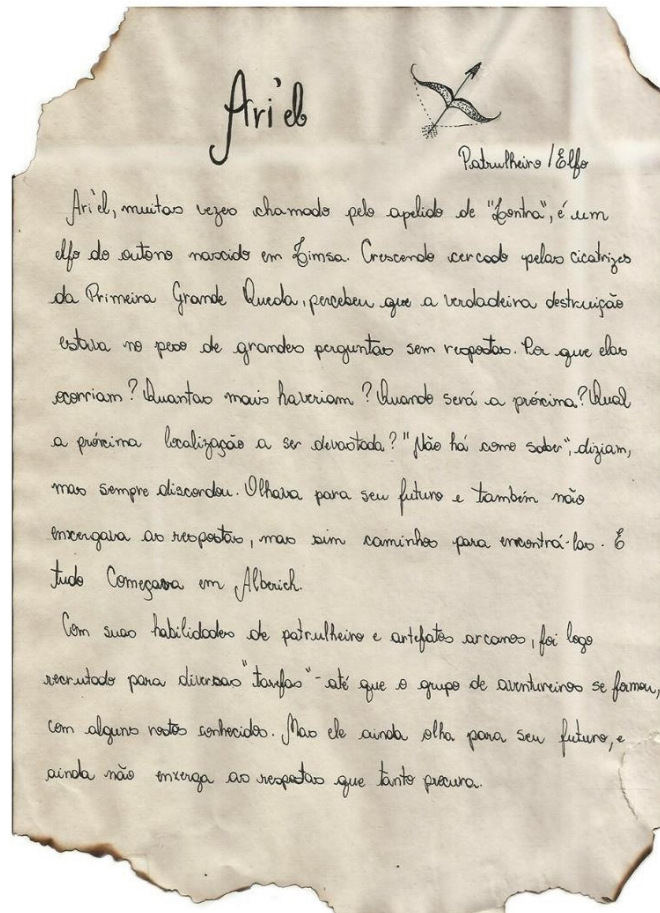 Ari'el
Patrulheiro / Elfo
Ari'el, muitas vezes chamado pelo apelido de "Lontra", é um
elfo do outono nascido em Limsa. Crescendo cercado pelas cicatrizes
da Primeira Grande Queda, percebeu que a verdadeira destruição
estava no peso de grandes perguntas sem respostas. Por que elas
ocorriam? Quantas mais haveriam? Quando será a próxima? Qual
a próxima localização a ser devastada? "Não há como saber", diziam,
mas sempre discordou. Olhava para seu futuro e também não
enxergava as respostas, mas sim caminhos para encontrá-las. E
tudo Começava em Alberich.
Com suas habilidades de patrulheiro e artefatos arcanos, foi logo
recrutado para diversas "tarefas" - até que o grupo de aventureiros se formou,
com alguns rostos conhecidos. Mas ele ainda olha para seu futuro, e
ainda não enxerga as respostas que tanto procura.